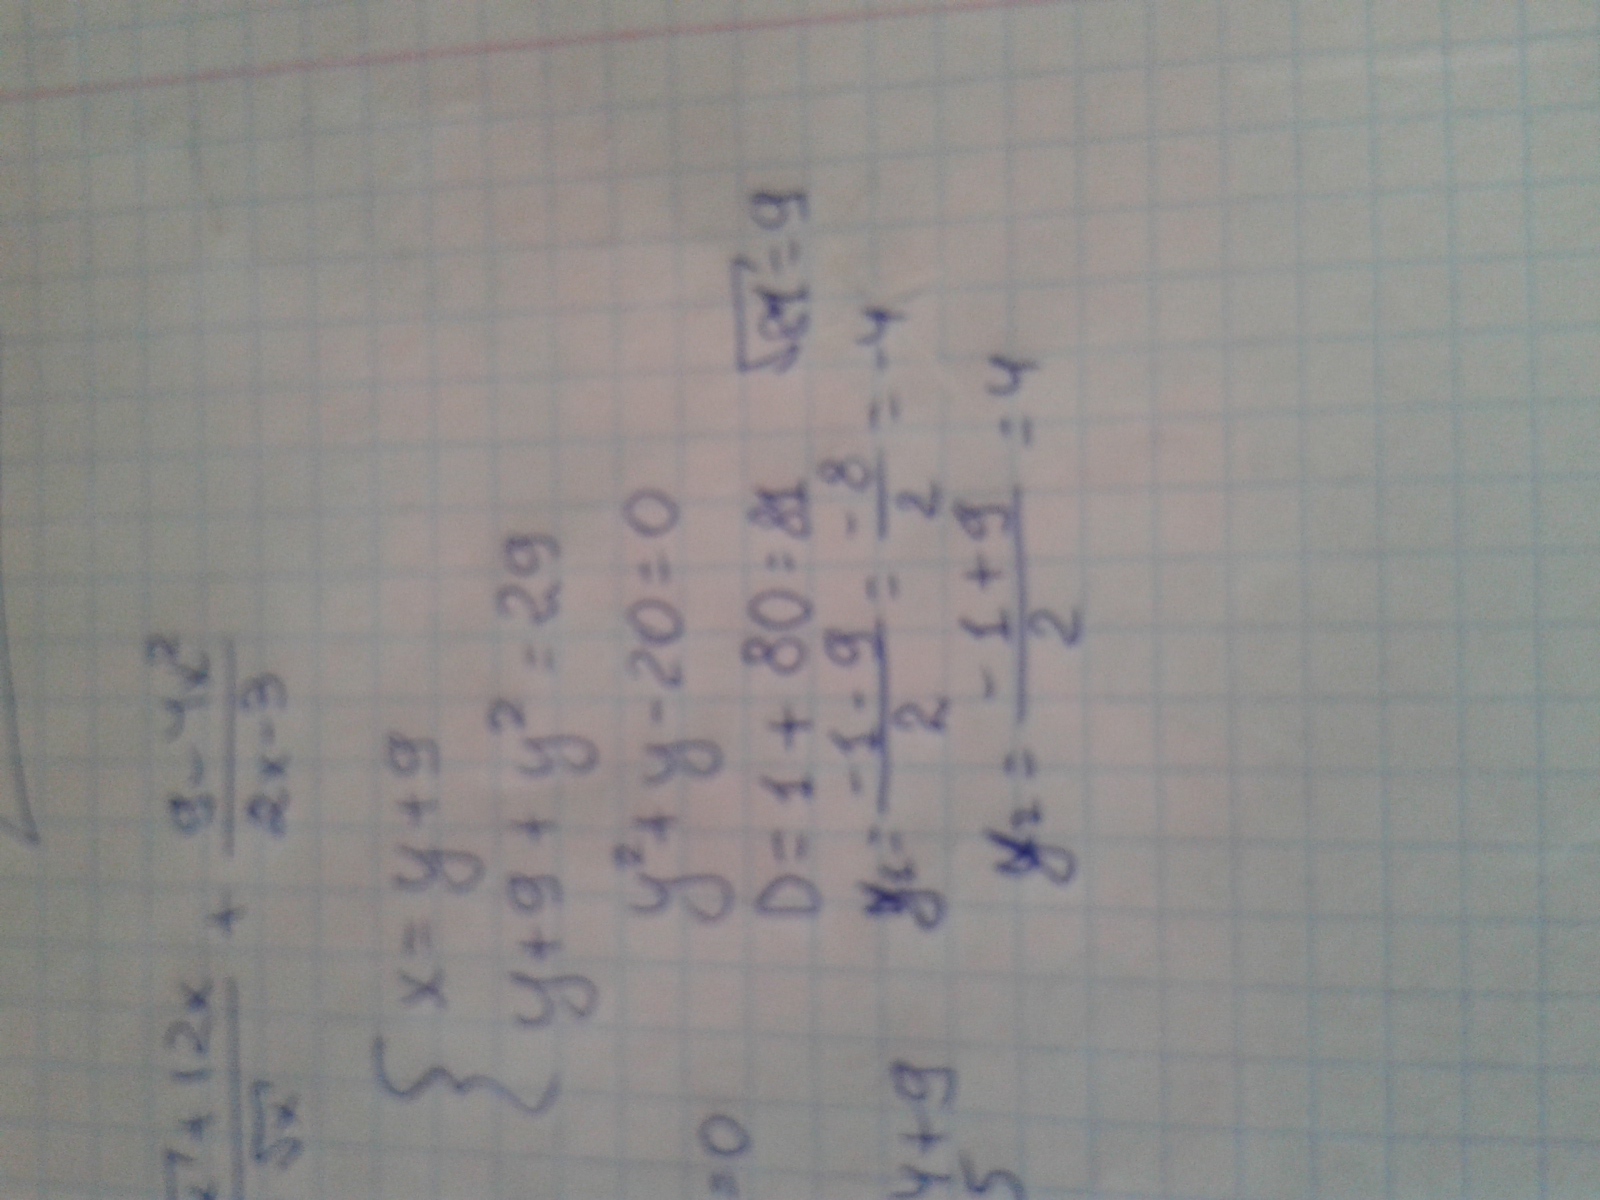 + 12x / √x + 9 - 4x² / 2x - 3
{ x = y + 9
y + 9 + y² = 29
y² + y - 20 = 0
= 0
D = 1 + 80 = 81 √81 = 9
y₁ = -1 - 9 / 2 = -8 / 2 = -4
y + 9
5
y₂ = -1 + 9 / 2 = 4